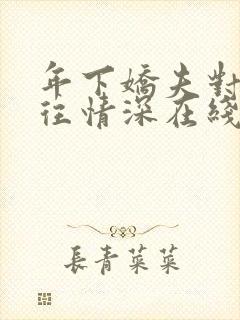 年下嬌夫對
往情深在綫
長青菜菜